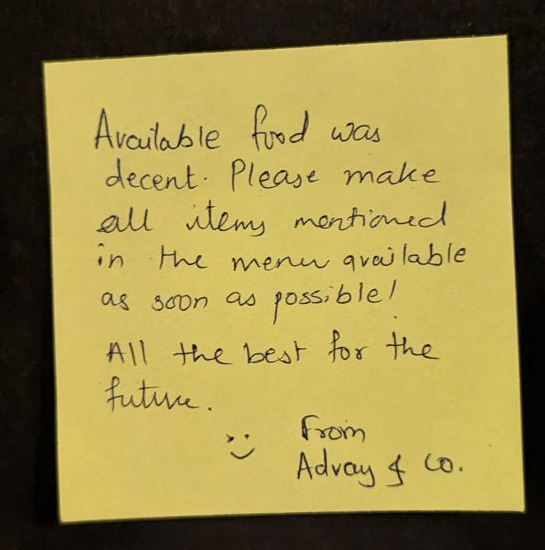 Available food was
decent. Please make
all items mentioned
in the menu available
as soon as possible!
All the best for the
future.
:) From
Advay & co.